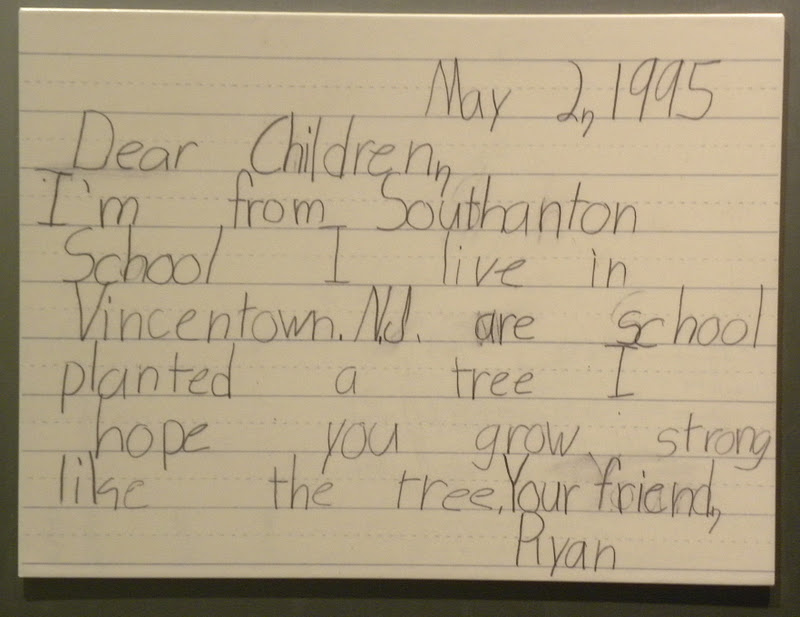 May 2, 1995
Dear Children,
I'm from Southanton
School I live in
Vincentown. N.J. are school
planted a tree I
hope you grow strong
like the tree. Your friend,
Ryan